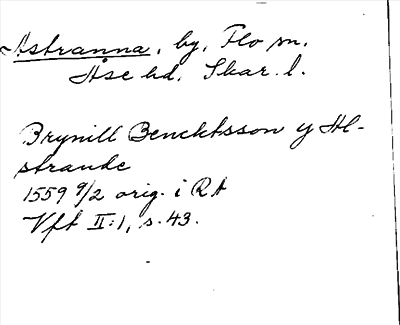 Astranna, by, Flo sn.
Åse hd, Skar. l.
Brynill Bencktsson y Al-
strande
1559 9/2 orig. i RA
Vft II:1, s. 43.